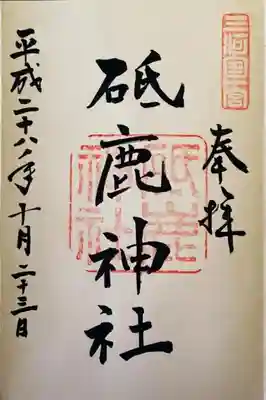 三河國一宮
奉拝
砥鹿神社
砥鹿神社
平成二十八年十月二十三日